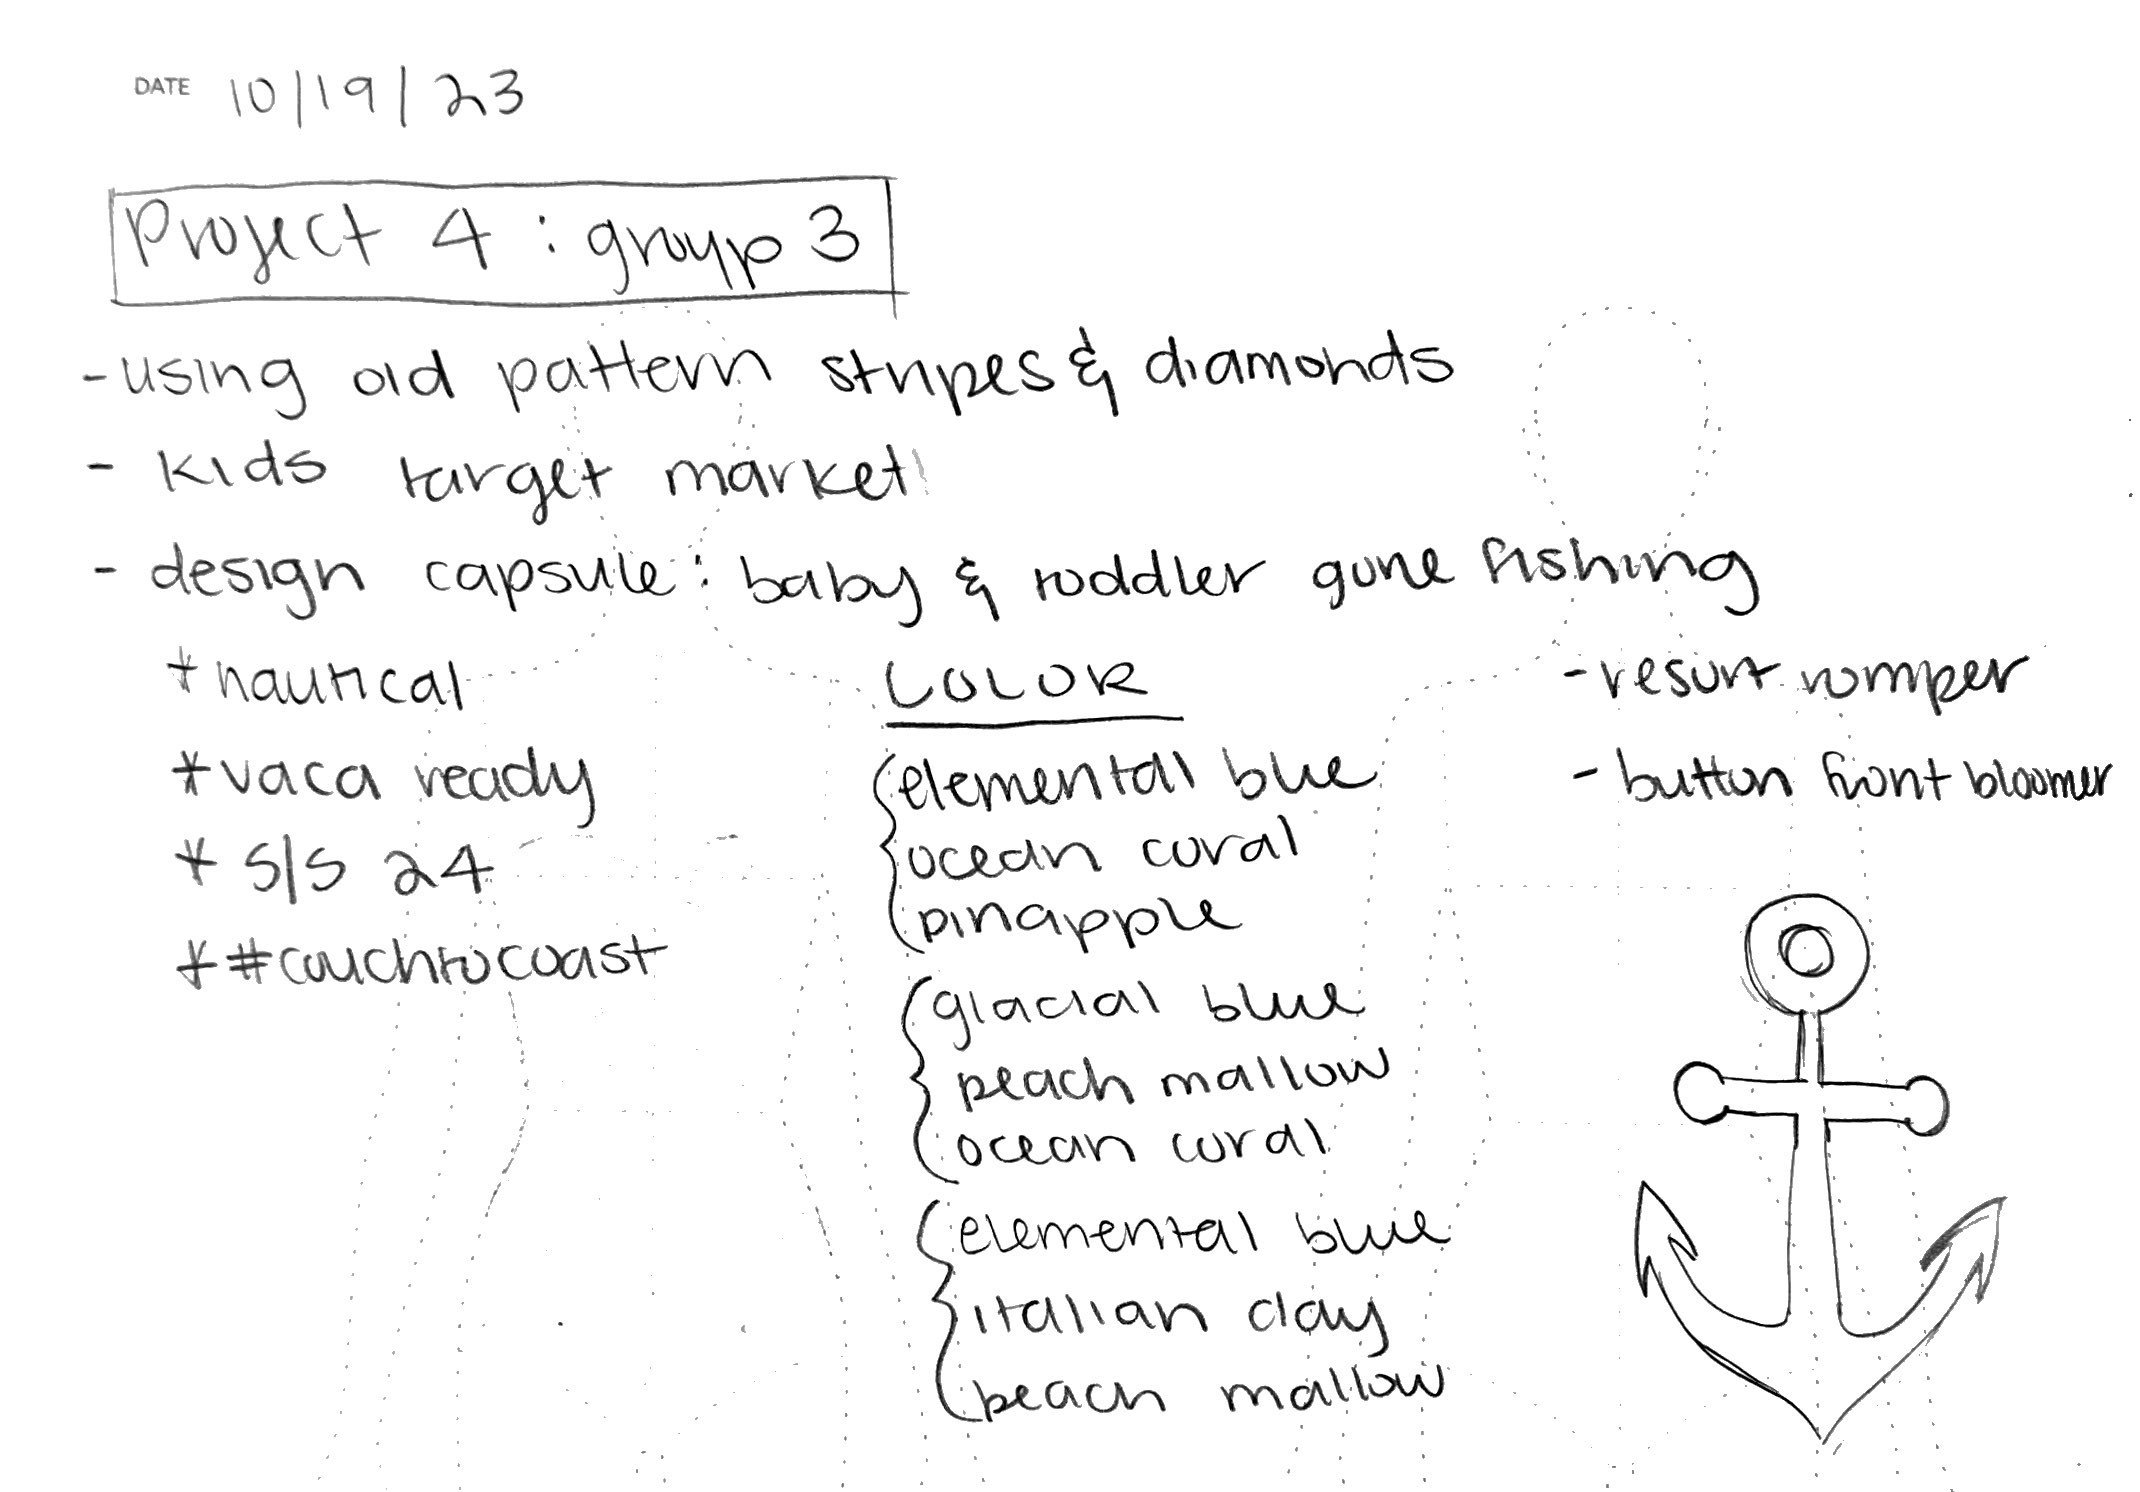 DATE 10/19/23
Project 4 : group 3
- using old pattern stripes & diamonds
- kids target market
- design capsule: baby & toddler gone fishing
* nautical
* vaca ready
* S/S 24
* #couchtocoast
COLOR
elemental blue
ocean coral
pinapple
glacial blue
peach mallow
ocean coral
elemental blue
italian clay
peach mallow
- resort romper
- button front bloomer